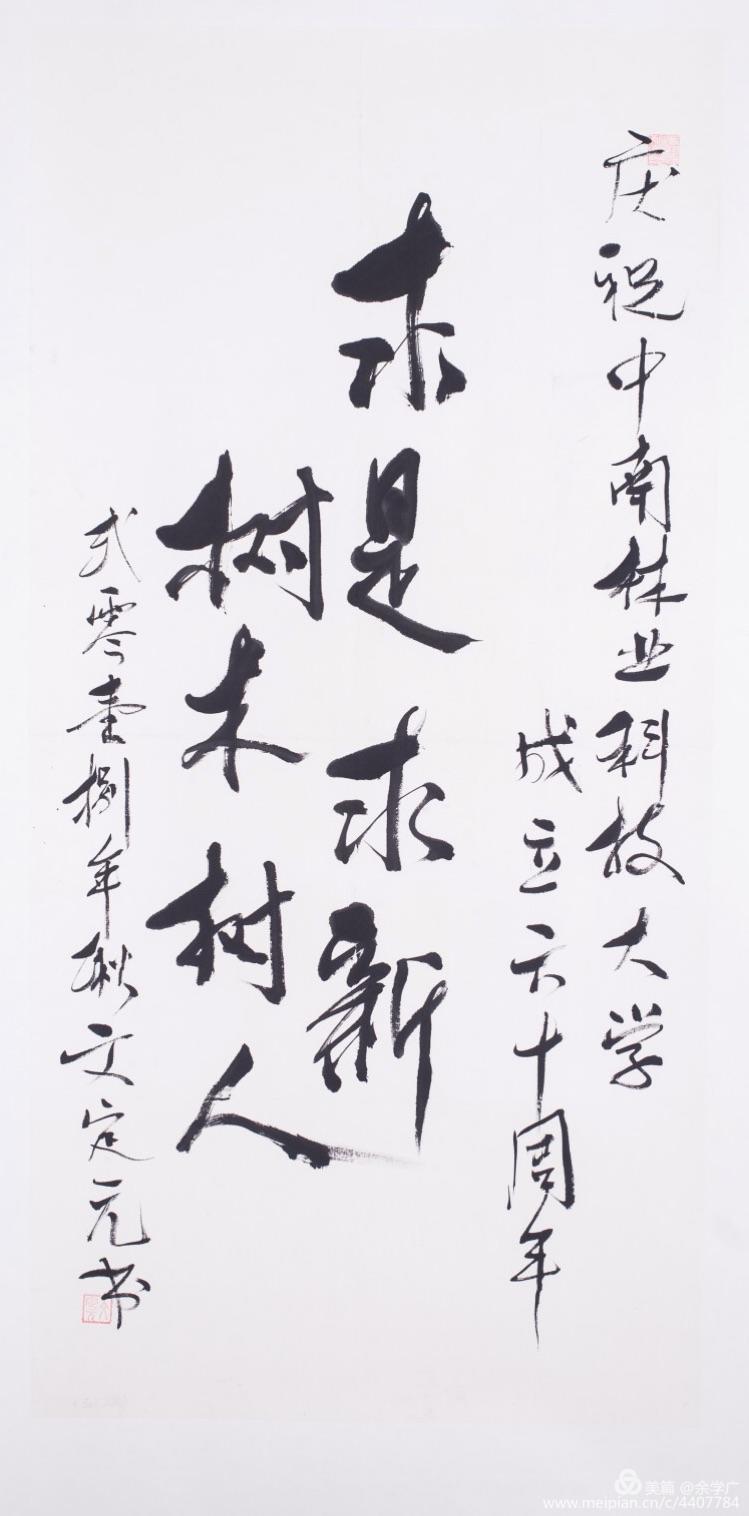 庆祝中南林业科技大学
成立六十周年
求是求新
树木树人
弍零壹捌年秋文定元书
美篇 @余学广
www.meipian.cn/c/4407784